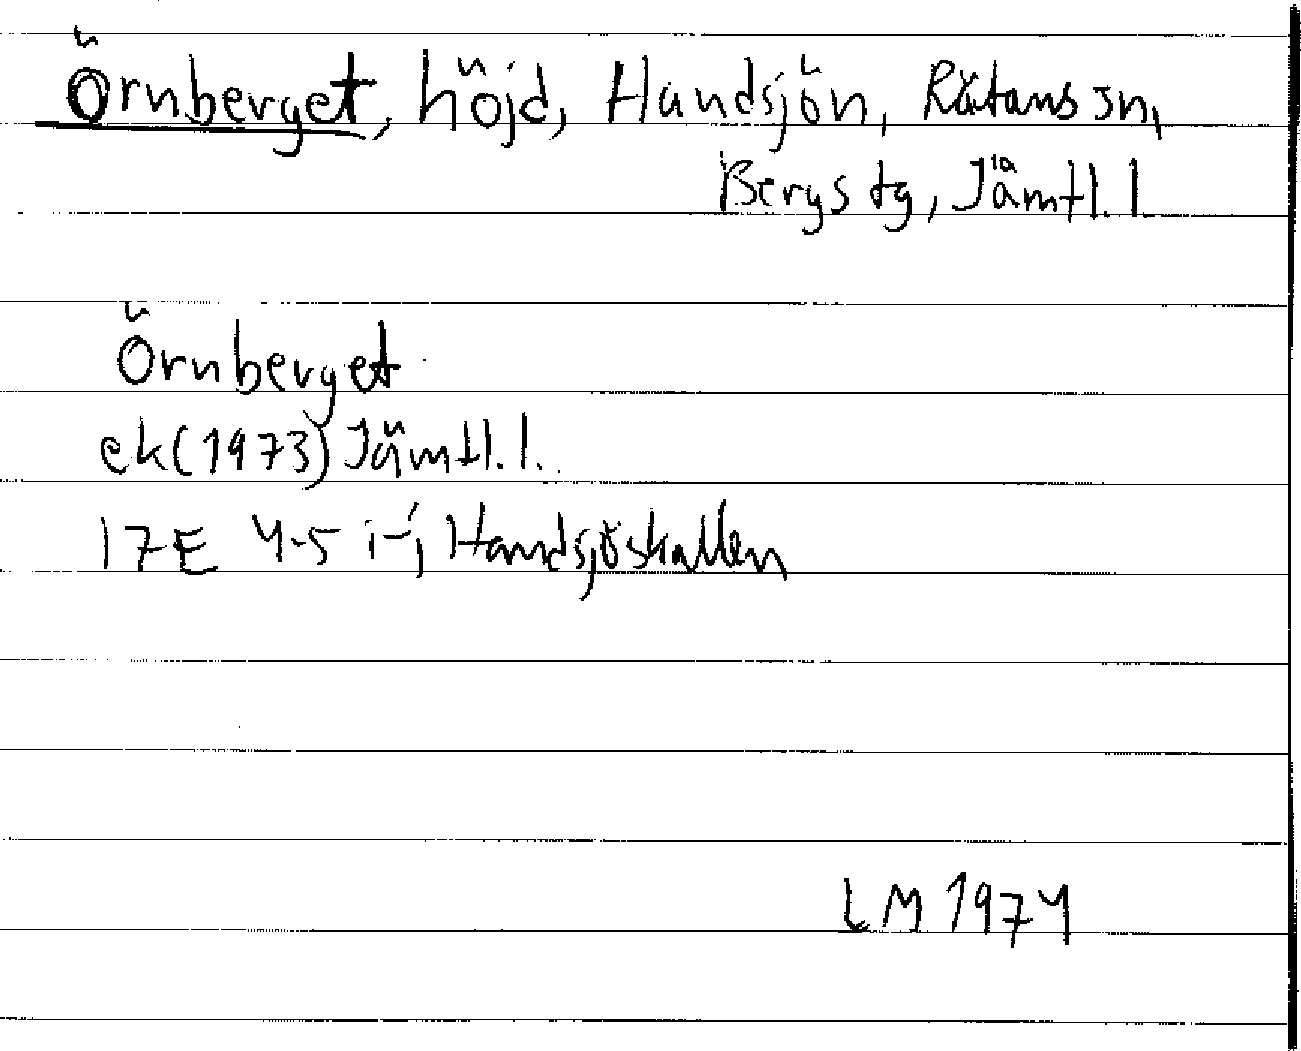 Örnberget, höjd, Handsjön, Rätans sn,
Bergs tg, Jämtl. l.
Örnberget
ek (1973) Jämtl. l.
17E 4-5 i-j, Handsjöskallen
LM 1974